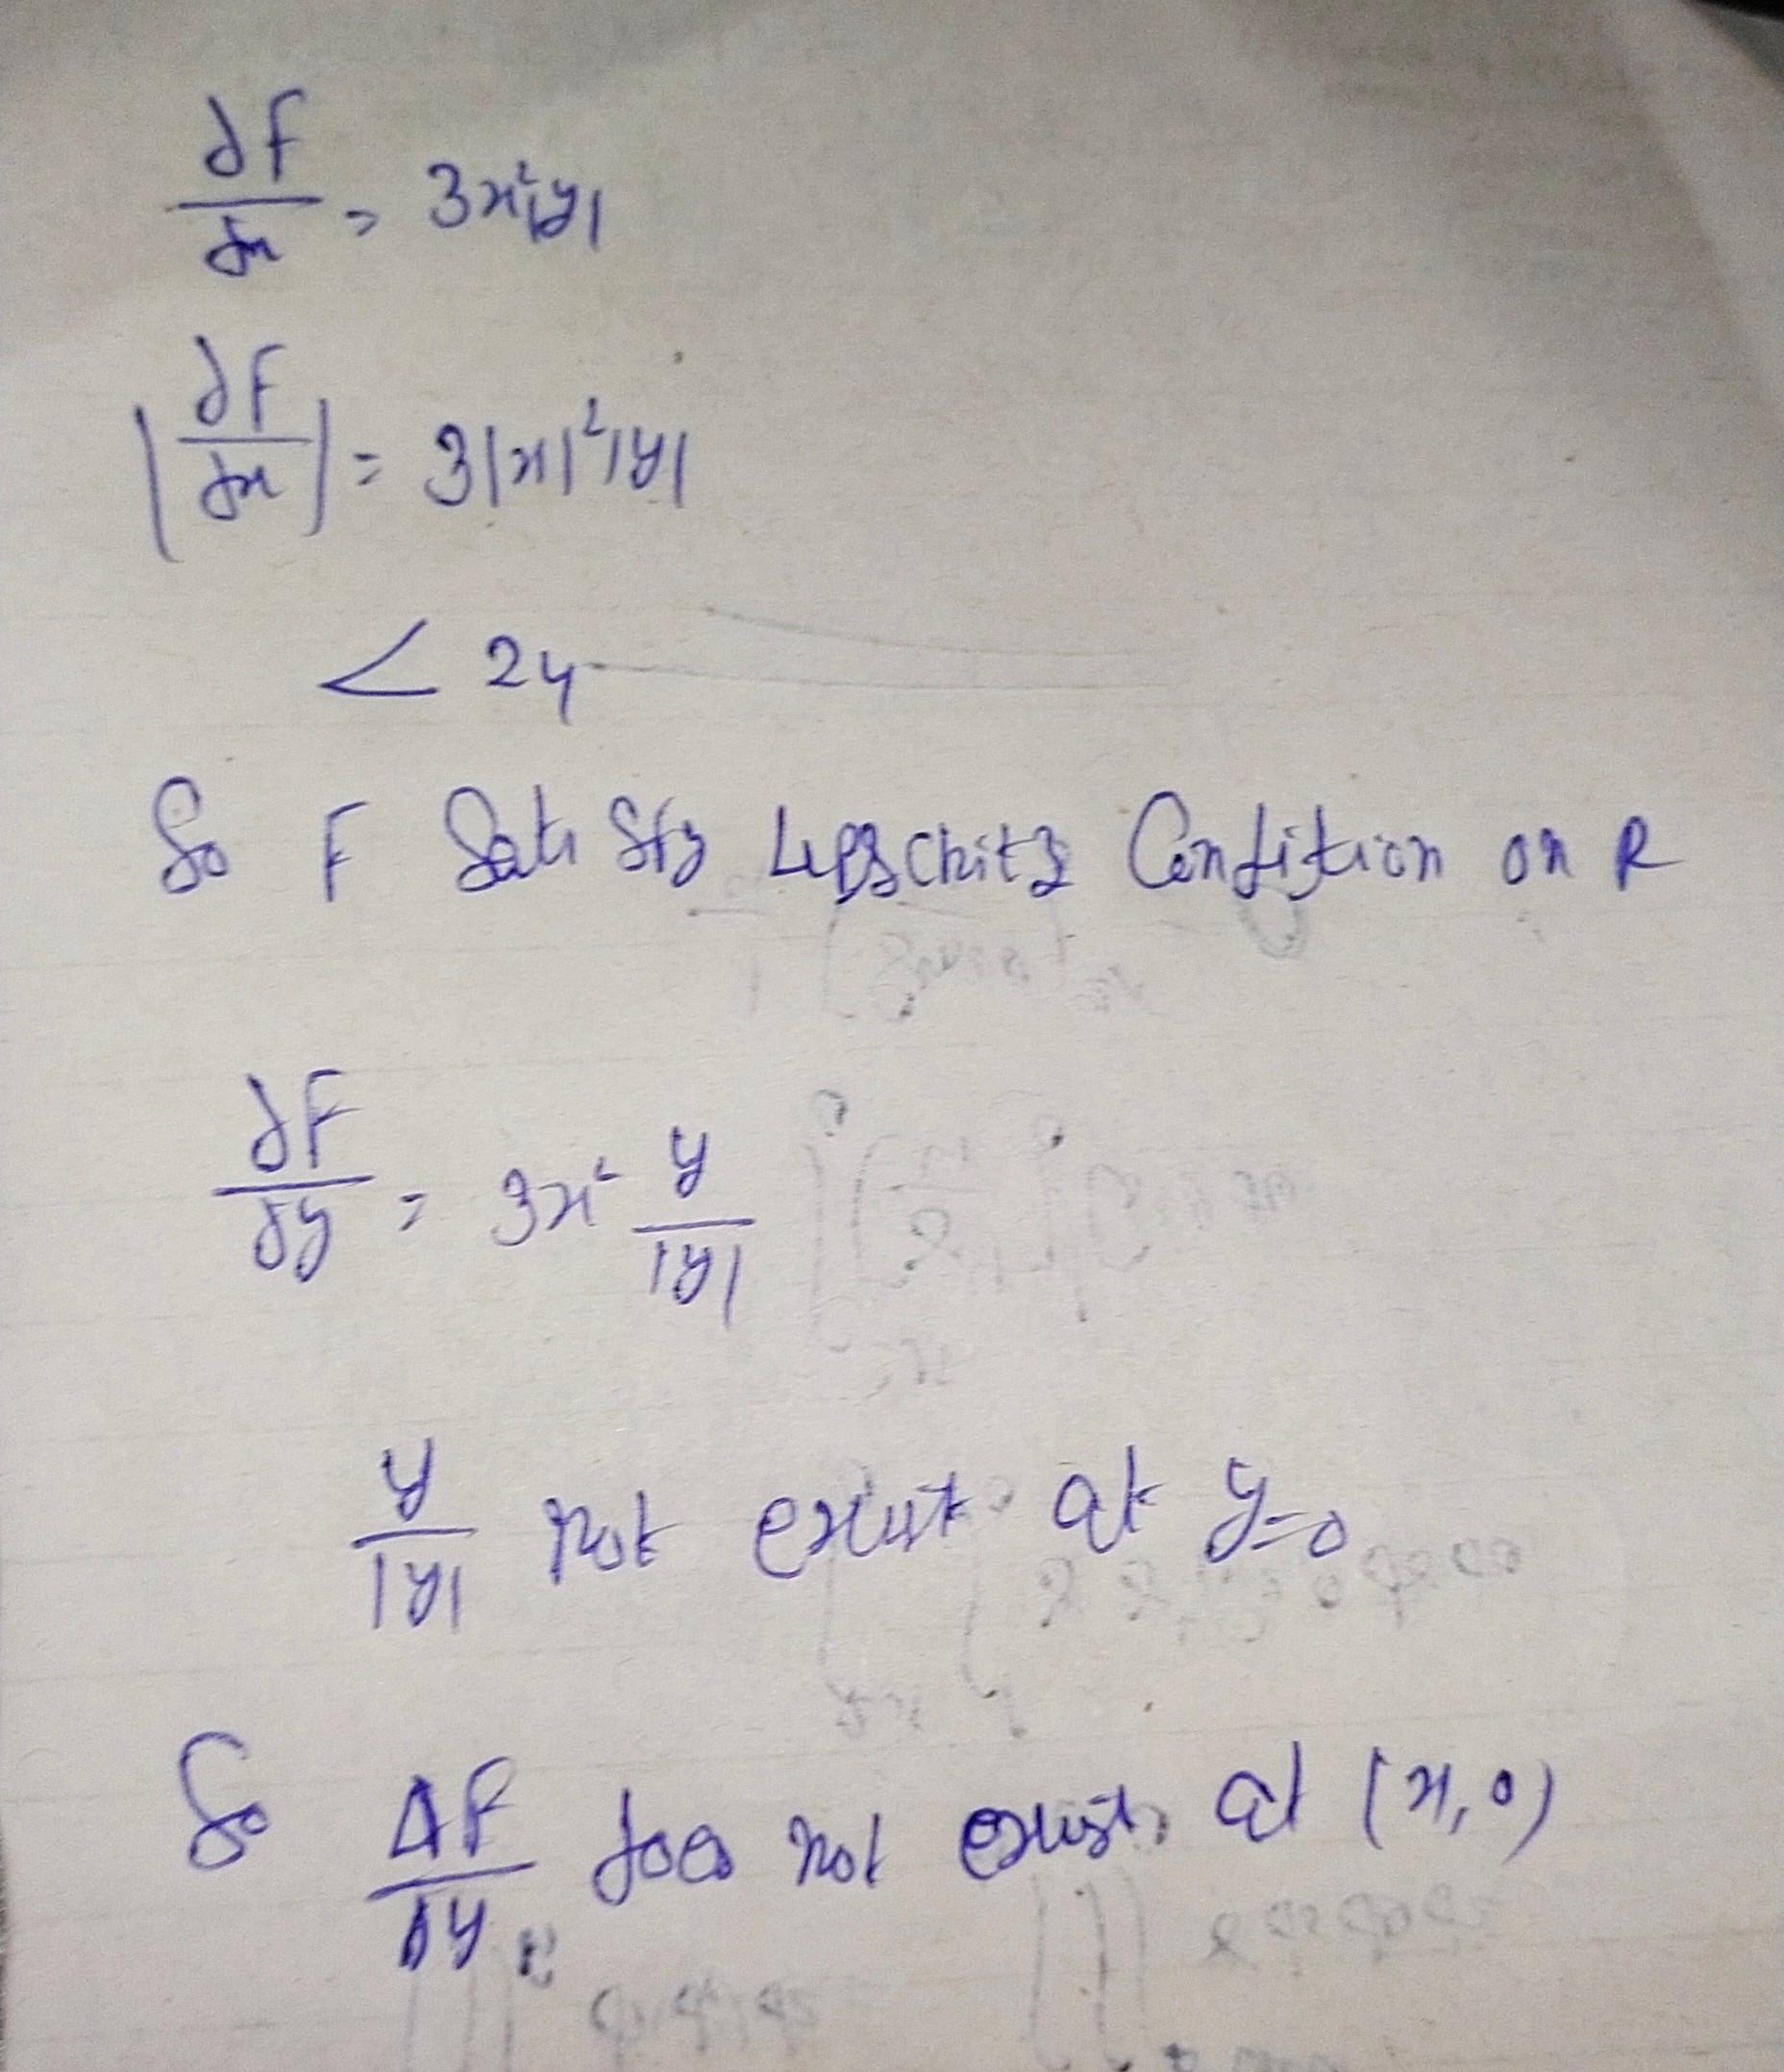 ∂F/∂x = 3x²|y|
|∂F/∂x| = 3|x|²|y|
< 24
So F Satisfy Lipschitz Condition on R
∂F/∂y = 3x² y/|y|
y/|y| not exist at y=0
So ∂F/∂y does not exist at (x,0)